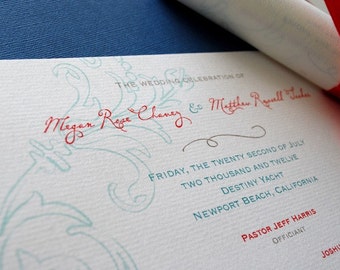 THE WEDDING CELEBRATION OF
Megan Rose Chaney & Matthew Russell
FRIDAY, THE TWENTY SECOND OF JULY
TWO THOUSAND AND TWELVE
DESTINY YACHT
NEWPORT BEACH, CALIFORNIA
PASTOR JEFF HARRIS
OFFICIANT